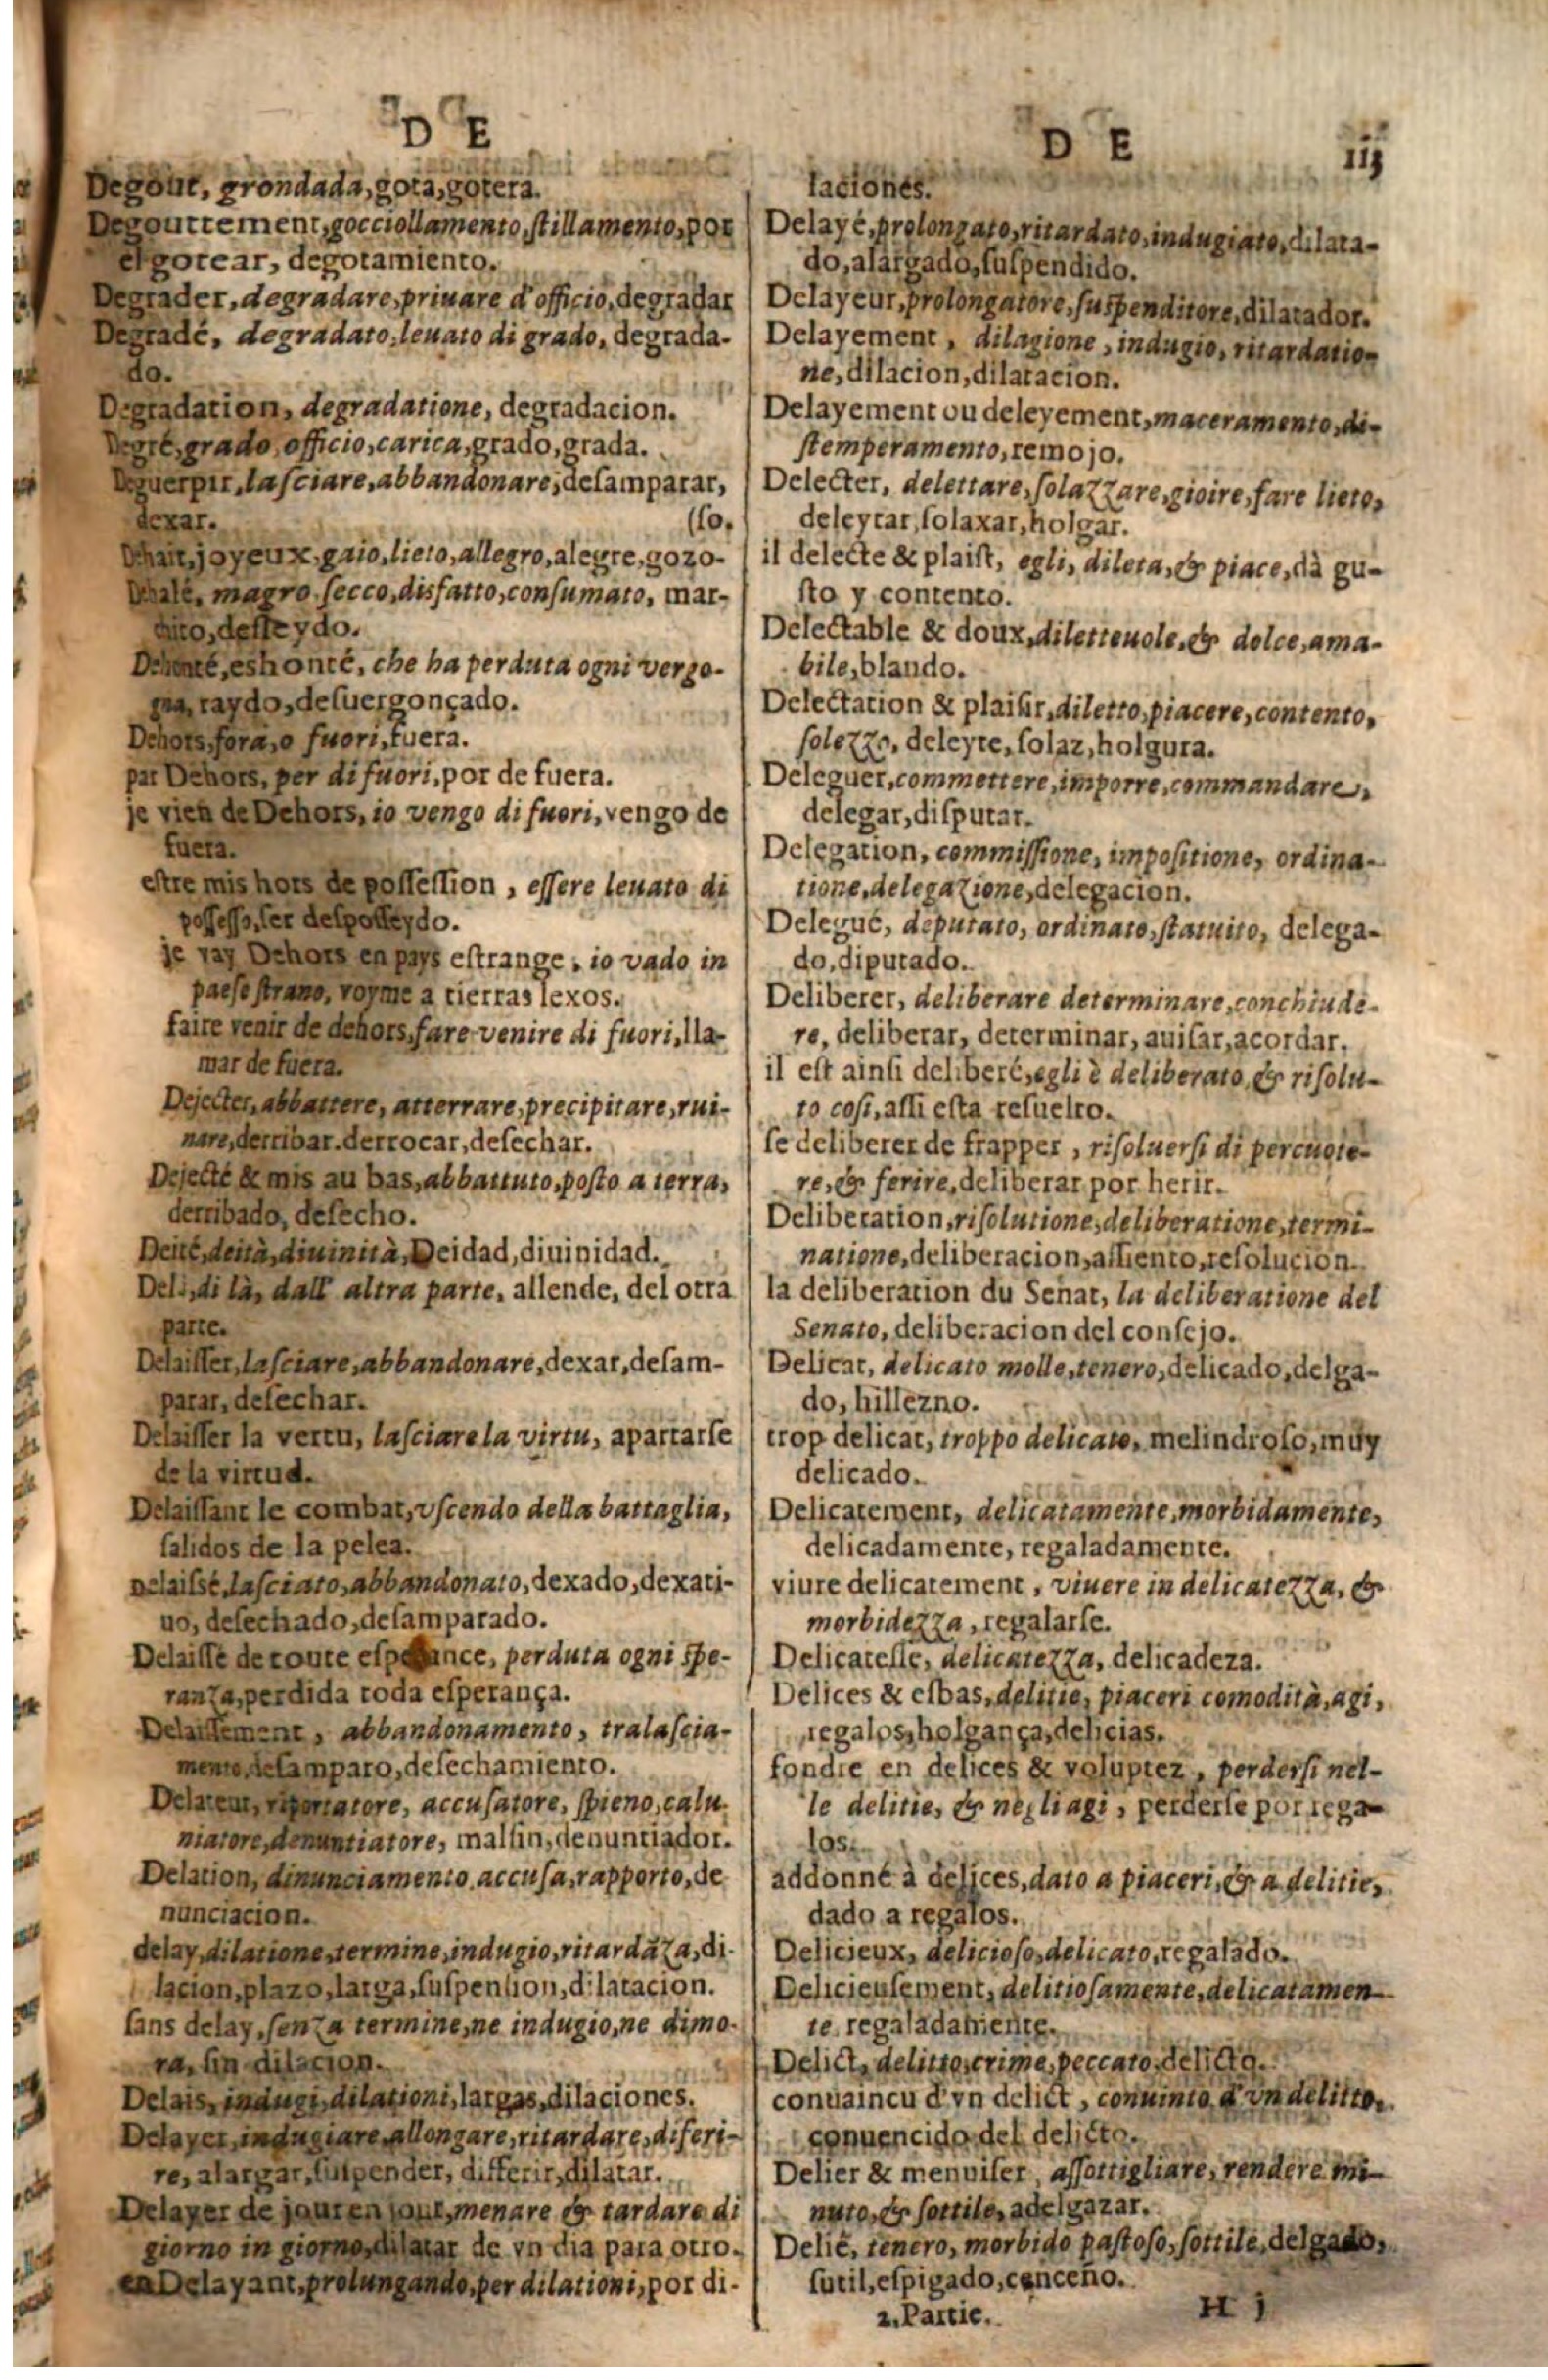 D E
Degout, grondada, gota, gotera.
Degouttement, gocciollamento, ſtillamento, por
el gotear, degotamiento.
Degrader, degradare, priuare d'officio, degradar
Degradé, degradato, leuato di grado, degrada-
do.
Degradation, degradatione, degradacion.
Degré, grado, officio, carica, grado, grada.
Deguerpir, laſciare, abbandonare, deſamparar,
dexar. (ſo.
Dehait, joyeux, gaio, lieto, allegro, alegre, gozo-
Dehalé, magro ſecco, disfatto, conſumato, mar-
chito, deſſeydo.
Dehonté, eshonté, che ha perduta ogni vergo-
gna, raydo, deſuergonçado.
Dehors, fora, o fuori, fuera.
par Dehors, per di fuori, por de fuera.
je vien de Dehors, io vengo di fuori, vengo de
fuera.
eſtre mis hors de poſſeſſion, eſſere leuato di
poſſeſſo, ſer deſpoſſeydo.
je vay Dehors en pays eſtrange, io vado in
paeſe ſtrano, voyme a tierras lexos.
faire venir de dehors, fare venire di fuori, lla-
mar de fuera.
Dejecter, abbattere, atterrare, precipitare, rui-
nare, derribar. derrocar, deſechar.
Dejecté & mis au bas, abbattuto, poſto a terra,
derribado, deſecho.
Deité, deità, diuinità, Deidad, diuinidad.
Delà, di là, dall' altra parte, allende, del otra
parte.
Delaiſſer, laſciare, abbandonare, dexar, deſam-
parar, deſechar.
Delaiſſer la vertu, laſciare la virtu, apartarſe
de la virtud.
Delaiſſant le combat, vſcendo della battaglia,
ſalidos de la pelea.
Delaiſsé, laſciato, abbandonato, dexado, dexati-
uo, deſechado, deſamparado.
Delaiſſé de toute eſperance, perduta ogni ſpe-
ranza, perdida toda eſperança.
Delaiſſement, abbandonamento, tralaſcia-
mento, deſamparo, deſechamiento.
Delateur, riportatore, accuſatore, ſpieno, calu-
niatore, denuntiatore, malſin, denuntiador.
Delation, dinunciamento, accuſa, rapporto, de
nunciacion.
delay, dilatione, termine, indugio, ritardãza, di-
lacion, plazo, larga, ſuſpenſion, dilatacion.
ſans delay, ſenza termine, ne indugio, ne dimo-
ra, ſin dilacion.
Delais, indugi, dilationi, largas, dilaciones.
Delayer, indugiare, allongare, ritardare, diferi-
re, alargar, ſuſpender, differir, dilatar.
Delayer de jour en jour, menare & tardare di
giorno in giorno, dilatar de vn dia para otro.
en Delayant, prolungando, per dilationi, por di-
D E iij
laciones.
Delayé, prolongato, ritardato, indugiato, dilata-
do, alargado, ſuſpendido.
Delayeur, prolongatore, ſuſpenditore, dilatador.
Delayement, dilagione, indugio, ritardatio-
ne, dilacion, dilatacion.
Delayement ou deleyement, maceramento, di-
ſtemperamento, remojo.
Delecter, delettare, ſolazzare, gioire, fare lieto,
deleytar, ſolaxar, holgar.
il delecte & plaiſt, egli, dileta, & piace, dà gu-
ſto y contento.
Delectable & doux, diletteuole, & dolce, ama-
bile, blando.
Delectation & plaiſir, diletto, piacere, contento,
ſolezzo, deleyte, ſolaz, holgura.
Deleguer, commettere, imporre, commandare,
delegar, diſputar.
Delegation, commiſſione, impoſitione, ordina-
tione, delegazione, delegacion.
Delegué, deputato, ordinato, ſtatuito, delega-
do, diputado.
Deliberer, deliberare determinare, conchiude-
re, deliberar, determinar, auiſar, acordar.
il eſt ainſi deliberé, egli è deliberato, & riſolu-
to coſi, aſſi eſta reſuelto.
ſe deliberer de frapper, riſoluerſi di percuote-
re, & ferire, deliberar por herir.
Deliberation, riſolutione, deliberatione, termi-
natione, deliberacion, aſſiento, reſolucion.
la deliberation du Senat, la deliberatione del
Senato, deliberacion del conſejo.
Delicat, delicato molle, tenero, delicado, delga-
do, hillezno.
trop delicat, troppo delicato, melindroſo, muy
delicado.
Delicatement, delicatamente, morbidamente,
delicadamente, regaladamente.
viure delicatement, viuere in delicatezza, &
morbidezza, regalarſe.
Delicateſſe, delicatezza, delicadeza.
Delices & eſbas, delitie, piaceri comodità, agi,
regalos, holgança, delicias.
fondre en delices & voluptez, perderſi nel-
le delitie, & negli agi, perderſe por rega-
los.
addonné à delices, dato a piaceri, & a delitie,
dado a regalos.
Delicieux, delicioſo, delicato, regalado.
Delicieuſement, delitioſamente, delicatamen-
te, regaladamente.
Delict, delitto, crime, peccato, delicto.
conuaincu d'vn delict, conuinto d'vn delitto,
conuencido del delicto.
Delier & menuiſer, aſſottigliare, rendere mi-
nuto, & ſottile, adelgazar.
Delié, tenero, morbido paſtoſo, ſottile, delgado,
ſutil, eſpigado, cenceño.
2. Partie. H j